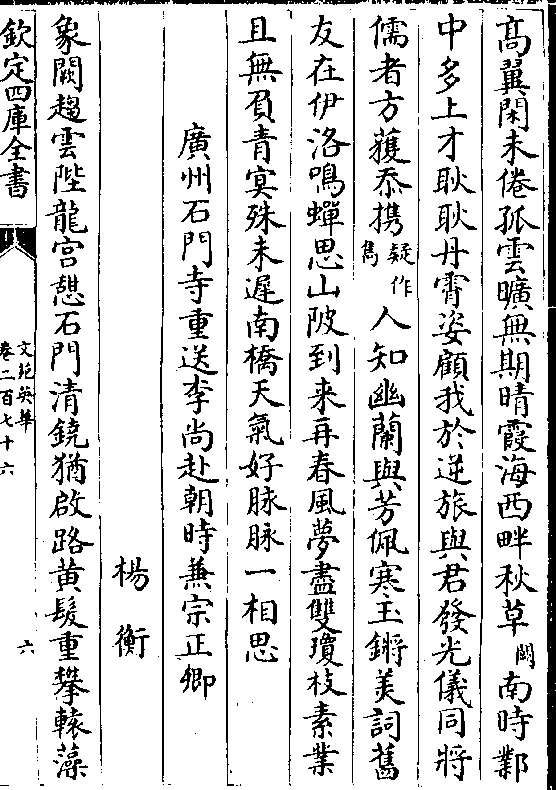 髙翼閑未倦孤雲曠無期晴霞海西畔秋草闕南時鄴
中多上才耿耿丹霄姿顧我於逆旅與君發光儀同將
儒者方獲忝携疑作雋人知幽蘭與芳佩寒玉鏘美詞舊
友在伊洛鳴蟬思山陂到来再春風夢盡雙瓊枝素業
且無負青寞殊未遲南橋天氣好脉脉一相思
廣州石門寺重送李尚赴朝時兼宗正卿
楊衡
象闕趨雲陛龍宫憇石門清鐃猶啟路黄髮重攀轅藻
欽定四庫全書
文苑英華
卷二百七十六
六